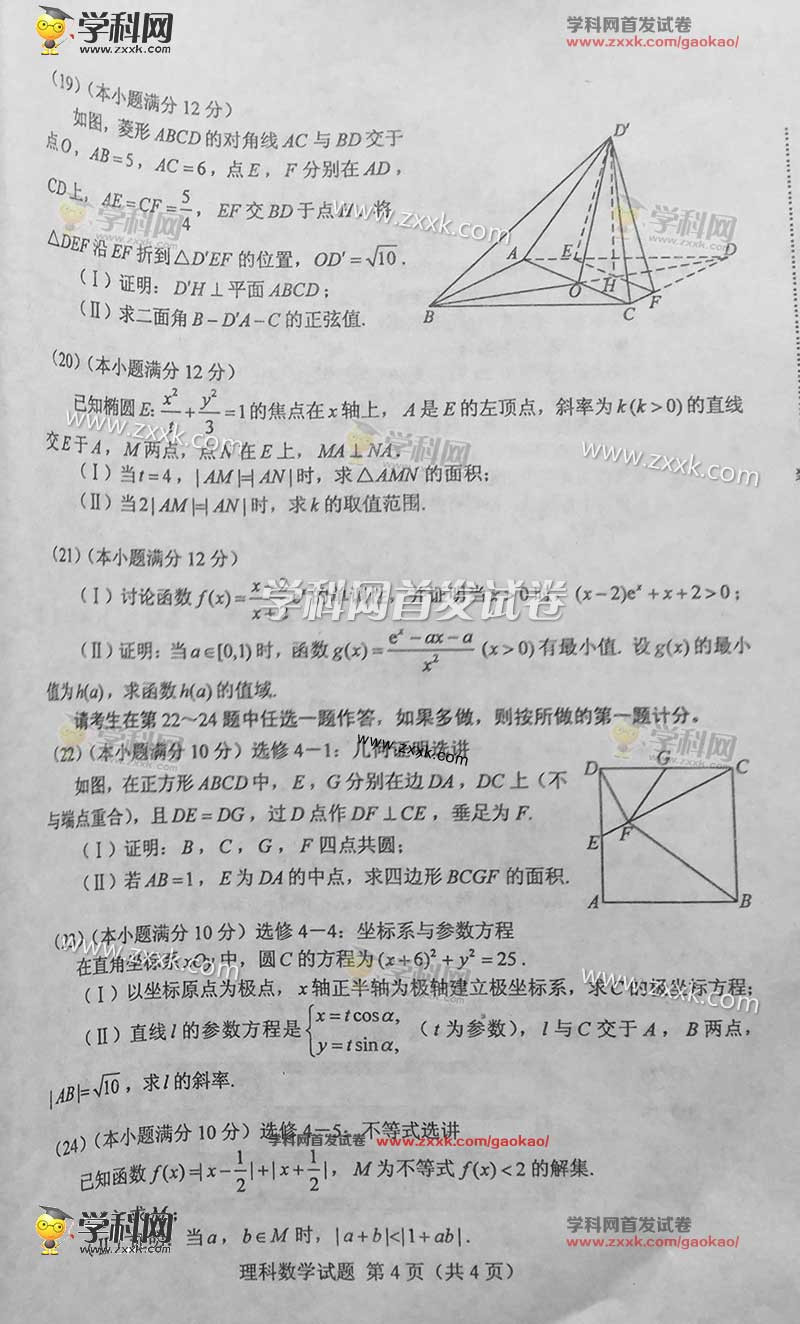 学科网
www.zxxk.com
学科网首发试卷
www.zxxk.com/gaokao/
(19)(本小题满分12分)
如图,菱形ABCD的对角线AC与BD交于
点O,AB=5,AC=6,点E,F分别在AD,
CD上,AE=CF=5/4,EF交BD于点H,将
△DEF沿EF折到△D'EF的位置,OD'=√10.
(Ⅰ)证明:D'H⊥平面ABCD;
(Ⅱ)求二面角B-D'A-C的正弦值.
D'
A
E
D
O
H
B
C
F
学科网
www.zxxk.com
学科网
www.zxxk.com
(20)(本小题满分12分)
已知椭圆E:x²/t+y²/3=1的焦点在x轴上,A是E的左顶点,斜率为k(k>0)的直线
交E于A,M两点,点N在E上,MA⊥NA.
(Ⅰ)当t=4,|AM|=|AN|时,求△AMN的面积;
(Ⅱ)当2|AM|=|AN|时,求k的取值范围.
www.zxxk.com
学科网
www.zxxk.com
(21)(本小题满分12分)
(Ⅰ)讨论函数f(x)= (x-2)eˣ+x+2>0;
学科网首发试卷
(Ⅱ)证明:当a∈[0,1)时,函数g(x)=(eˣ-ax-a)/x² (x>0)有最小值.设g(x)的最小
值为h(a),求函数h(a)的值域.
请考生在第22~24题中任选一题作答,如果多做,则按所做的第一题计分。
(22)(本小题满分10分)选修4-1:几何证明选讲
www.zxxk.com
如图,在正方形ABCD中,E,G分别在边DA,DC上(不
与端点重合),且DE=DG,过D点作DF⊥CE,垂足为F.
(Ⅰ)证明:B,C,G,F四点共圆;
(Ⅱ)若AB=1,E为DA的中点,求四边形BCGF的面积.
D
G
C
E
F
A
B
(23)(本小题满分10分)选修4-4:坐标系与参数方程
在直角坐标系xOy中,圆C的方程为(x+6)²+y²=25.
(Ⅰ)以坐标原点为极点,x轴正半轴为极轴建立极坐标系,求C的极坐标方程;
(Ⅱ)直线l的参数方程是{x=tcosα, y=tsinα,(t为参数),l与C交于A,B两点,
|AB|=√10,求l的斜率.
www.zxxk.com
学科网
www.zxxk.com
(24)(本小题满分10分)选修4-5:不等式选讲
学科网首发试卷 www.zxxk.com/gaokao/
已知函数f(x)=|x-1/2|+|x+1/2|,M为不等式f(x)<2的解集.
求M;
当a,b∈M时,|a+b|<|1+ab|.
理科数学试题 第4页(共4页)
学科网
www.zxxk.com
学科网首发试卷
www.zxxk.com/gaokao/